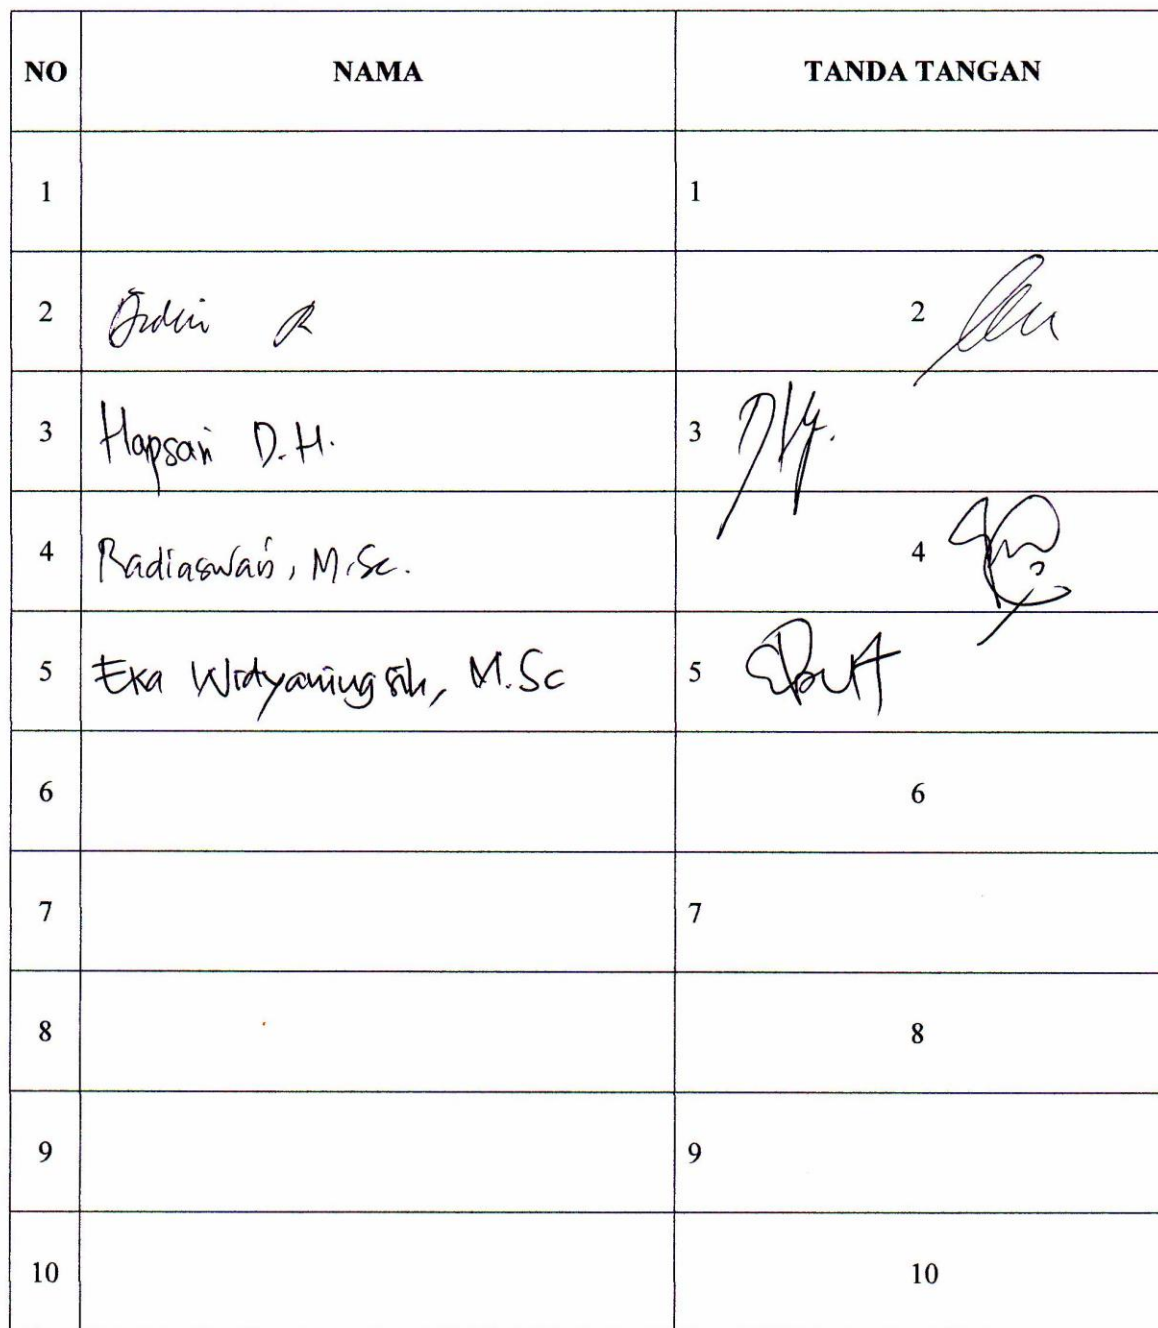 NO NAMA TANDA TANGAN
1 1
2 R 2
3 Hapsari D.H. 3
4 Radiaswari, M.Sc. 4
5 Eka Widyaningsih, M.Sc 5
6 6
7 7
8 8
9 9
10 10